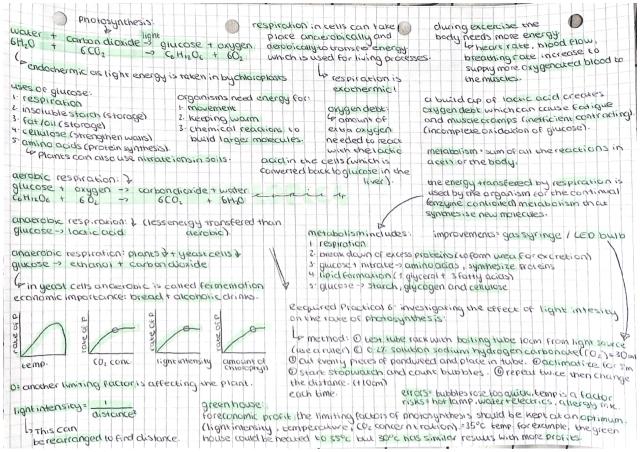 Photosynthesis:
water + carbon dioxide light→ glucose + oxygen
6H₂O + 6CO₂ → C₆H₁₂O₆ + 6O₂
↳ endothermic as light energy is taken in by chloroplasts
uses of glucose:
1 respiration
2. insoluble starch (storage)
3. fat/oil (storage)
4. cellulose (strengthen walls)
5. amino acids (protein synthesis)
↳ Plants can also use nitrate ions in soils.
aerobic respiration: ↓
glucose + oxygen → carbon dioxide + water
C₆H₁₂O₆ + 6O₂ → 6CO₂ + 6H₂O
anaerobic respiration: ↓ (less energy transfered than
glucose → lactic acid aerobic)
anaerobic respiration: plants ↓ + yeast cells ↓
glucose → ethanol + carbon dioxide
↳ in yeast cells anaerobic is called fermentation
economic importance: bread + alcoholic drinks.
rate of P
temp.
rate of P
CO₂ conc
rate of P
light intensity
rate of P
amount of
chlorophyll
O= another limiting factor is affecting the plant.
light intensity = 1
distance²
↳ This can
be rearranged to find distance.
respiration in cells can take
place anaerobically and
aerobically to transfer energy
which is used for living processes.
↳ respiration is
exothermic!
organisms need energy for:
1 movement
2. keeping warm
3. chemical reactions to
build larger molecules.
oxygen debt:
↳ amount of
extra oxygen
needed to react
with the lactic
acid in the cells (which is
converted back to glucose in the
liver).
during excercise the
body needs more energy.
↳ heart rate, blood flow,
breathing rate increase to
supply more oxygenated blood to
the muscles.
a build up of lactic acid creates
oxygen debt which can cause fatigue
and muscle cramps (inefficient contracting)
(incomplete oxidation of glucose).
metabolism: sum of all the reactions in
a cell or the body.
the energy transfered by respiration is
used by the organism for the continual
(enzyme controlled) metabolism that
synthesise new molecules.
metabolism includes:
1 respiration
2 break down of excess proteins (to form urea for excretion)
3 glucose + nitrate → amino acids, synthesize proteins
4 lipid formation (1 glycerol + 3 fatty acids)
5 glucose → starch, glycogen and cellulose
improvements: gas syringe / LED bulb
Required Practical 6: investigating the effect of light intesity
on the rate of photosynthesis:
↳ method: ① test tube rack with boiling tube 10cm from light source
(use ruler) ② 0.2% solution sodium hydrogen carbonate (CO₂) = 30ml
③ cut evenly pieces of pondweed and place in tube. ④ acclimatise for 5m
⑤ start stopwatch and count bubbles. ⑥ repeat twice then change
the distance. (+10cm)
each time.
errors: bubbles rose too quick, temp is a factor
risks: hot lamp, water + electrics, allergy risk.
greenhouse:
for economic profit, the limiting factors of photosynthesis should be kept at an optimum.
(light intensity, temperature, CO₂ concentration). = 35°C temp. for example, the green
house could be heated to 35°C but 30°C has similar results with more profits.